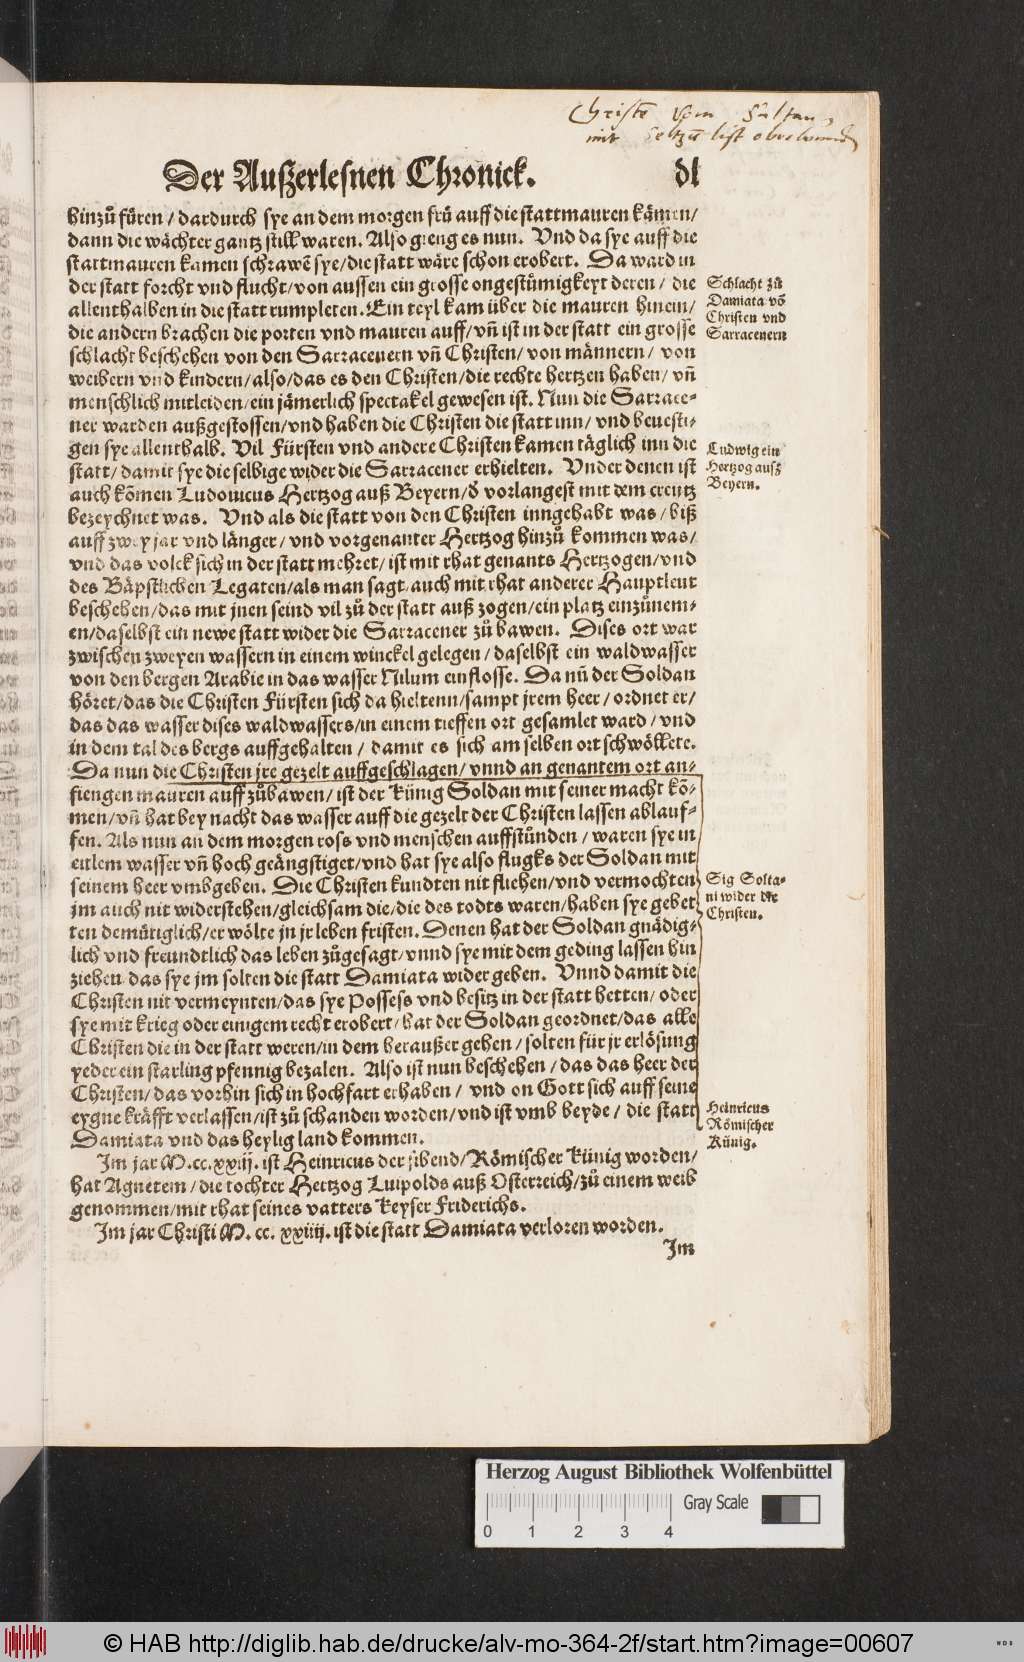 Christē vom Sultan,
mit list
Der Außerlesnen Chronick. dl
hinzů füren / dardurch sye an dem morgen frü auff die stattmauren kämen/
dann die wächter gantz still waren. Also gieng es nun. Vnd da sye auff die
stattmauren kamen schrawē sye/die statt wäre schon erobert. Da ward in
der statt forcht vnd flucht/von aussen ein grosse ongestümigkeyt deren / die
allenthalben in die statt rumpleten. Ein teyl kam über die mauren hinein/
die andern brachen die porten vnd mauren auff/vñ ist in der statt ein grosse
schlacht beschehen von den Sarracenern vñ Christen/von männern/ von
weibern vnd kindern/also/das es den Christen/die rechte hertzen haben/ vñ
menschlich mitleiden/ein jämerlich spectakel gewesen ist. Nun die Sarrace-
ner warden außgestossen/vnd haben die Christen die statt inn/ vnd beuesti-
gen sye allenthalb. Vil Fürsten vnd andere Christen kamen täglich inn die
statt/damit sye die selbige wider die Sarracener erhielten. Vnder denen ist
auch kōmen Ludouicus Hertzog auß Beyern/d' vorlangest mit dem creutz
bezeychnet was. Vnd als die statt von den Christen inngehabt was/biß
auff zwey jar vnd länger/vnd vorgenanter Hertzog hinzů kommen was/
vnd das volck sich in der statt mehret/ist mit rhat genants Hertzogen/vnd
des Bäpstlichen Legaten/als man sagt/auch mit rhat anderer Hauptleut
beschehen/das mit jnen seind vil zů der statt auß zogen/ein platz einzůnem-
en/daselbst ein newe statt wider die Sarracener zů bawen. Dises ort war
zwischen zweyen wassern in einem winckel gelegen/daselbst ein waldwasser
von den bergen Arabie in das wasser Nilum einflosse. Da nū der Soldan
höret/das die Christen Fürsten sich da hieltenn/sampt jrem heer/ordnet er/
das das wasser dises waldwassers/in einem tieffen ort gesamlet ward/vnd
in dem tal des bergs auffgehalten/ damit es sich am selben ort schwöllete.
Da nun die Christen jre gezelt auffgeschlagen/vnnd an genantem ort an-
fiengen mauren auff zůbawen/ist der Künig Soldan mit seiner macht kō-
men/vñ hat bey nacht das wasser auff die gezelt der Christen lassen ablauf-
fen. Als nun an dem morgen ross vnd menschen auffstůnden/ waren sye in
eitlem wasser vñ hoch geängstiget/vnd hat sye also flugks der Soldan mit
seinem heer vmbgeben. Die Christen kundten nit fliehen/vnd vermochten
jm auch nit widerstehen/gleichsam die/die des todts waren/haben sye gebet
ten demütiglich/er wölte jn jr leben fristen. Denen hat der Soldan gnädig-
lich vnd freundtlich das leben zůgesagt/vnnd sye mit dem geding lassen hin
ziehen/das sye jm solten die statt Damiata wider geben. Vnnd damit die
Christen nit vermeynten/das sye Possess vnd besitz in der statt hetten/oder
sye mit krieg oder einigem recht erobert/hat der Soldan geordnet/das alle
Christen die in der statt weren/in dem heraußer gehen/solten für jr erlösung
yeder ein starling pfennig bezalen. Also ist nun beschehen/das das heer der
Christen/das vorhin sich in hochfart erhaben/ vnd on Gott sich auff seine
eygne kräfft verlassen/ist zů schanden worden/vnd ist vmb beyde/ die statt
Damiata vnd das heylig land kommen.
Im jar M.cc.xxiij. ist Heinricus der sibend/Römischer Künig worden/
hat Agnetem/die tochter Hertzog Luipolds auß Osterreich/zů einem weib
genommen/mit rhat seines vatters Keyser Friderichs.
Im jar Christi M.cc.xxiiij. ist die statt Damiata verloren worden.
Im
Schlacht zů
Damiata vō
Christen vnd
Sarracenern
Ludwig ein
Hertzog ausz
Beyern.
Sig Solta-
ni wider die
Christen.
Heinricus
Römischer
Künig.
Herzog August Bibliothek Wolfenbüttel
Gray Scale
0 1 2 3 4
© HAB http://diglib.hab.de/drucke/alv-mo-364-2f/start.htm?image=00607